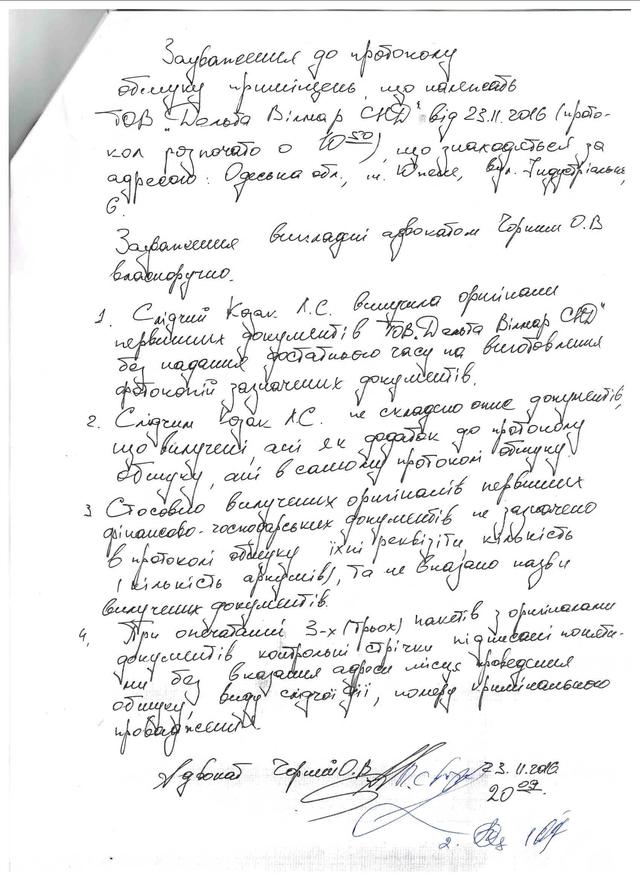 Зауваження до протоколу
обшуку приміщень, що належать
ТОВ "Дельта Вілмар СНД" від 23.11.2016 (прото-
кол розпочато о 10 50), що знаходяться за
адресою: Одеська обл., м. Южне, вул. Індустріальна,
6.
Зауваження викладені адвокатом Чорним О.В
власноручно.
1. Слідчий Козак Л.С. вилучила оригінали
первинних документів ТОВ "Дельта Вілмар СНД"
без надання достатнього часу на виготовлення
фотокопій зазначених документів.
2. Слідчим Козак Л.С. не складено опис документів,
що вилучені, ані як додаток до протоколу
обшуку, ані в самому протоколі обшуку.
3 Стосовно вилучених оригіналів первинних
фінансово-господарських документів не зазначено
в протоколі обшуку їхні реквізити, кількість
(кількість аркушів), та не вказано назви
вилучених документів.
4. При опечатанні 3-х (трьох) пакетів з оригіналами
документів контрольні стрічки підписані поняти-
ми без вказання адреси місця проведення
обшуку, виду слідчої дії, номеру кримінального
провадження
Адвокат Чорний О.В 23.11.2016
20 09
2.